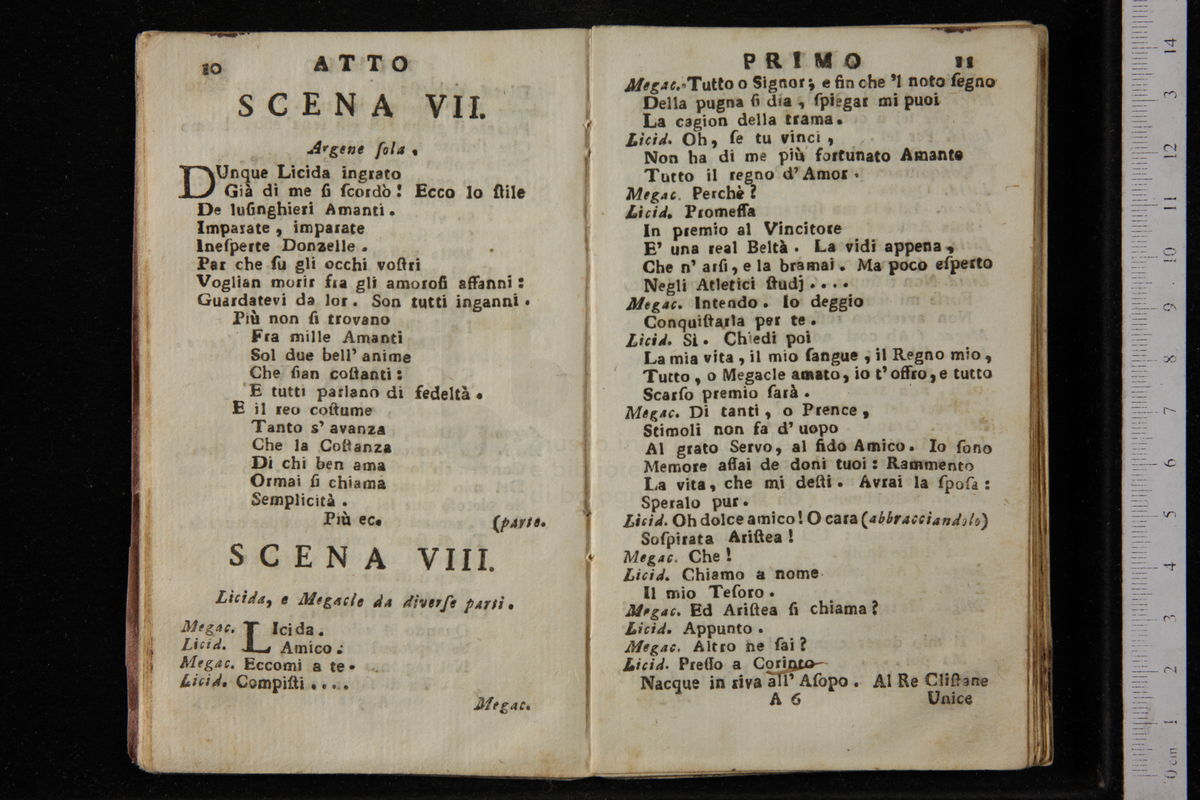 10 ATTO
SCENA VII.
Argene ſola.
DUnque Licida ingrato
Già di me ſi ſcordò! Ecco lo ſtile
De luſinghieri Amanti.
Imparate, imparate
Ineſperte Donzelle.
Par che ſu gli occhi voſtri
Voglian morir fra gli amoroſi affanni:
Guardatevi da lor. Son tutti inganni.
Più non ſi trovano
Fra mille Amanti
Sol due bell' anime
Che ſian coſtanti:
E tutti parlano di fedeltà.
E il reo coſtume
Tanto s' avanza
Che la Coſtanza
Di chi ben ama
Ormai ſi chiama
Semplicità.
Più ec. (parte.
SCENA VIII.
Licida, e Megacle da diverſe parti.
Megac. LIcida.
Licid. Amico.
Megac. Eccomi a te.
Licid. Compiſti ....
Megac.
PRIMO 11
Megac. Tutto o Signor; e fin che 'l noto ſegno
Della pugna ſi dia, ſpiegar mi puoi
La cagion della trama.
Licid. Oh, ſe tu vinci,
Non ha di me più fortunato Amante
Tutto il regno d' Amor.
Megac. Perchè?
Licid. Promeſſa
In premio al Vincitore
E' una real Beltà. La vidi appena,
Che n' arſi, e la bramai. Ma poco eſperto
Negli Atletici ſtudj ....
Megac. Intendo. Io deggio
Conquiſtarla per te.
Licid. Sì. Chiedi poi
La mia vita, il mio ſangue, il Regno mio,
Tutto, o Megacle amato, io t' offro, e tutto
Scarſo premio ſarà.
Megac. Di tanti, o Prence,
Stimoli non fa d' uopo
Al grato Servo, al fido Amico. Io ſono
Memore aſſai de doni tuoi: Rammento
La vita, che mi deſti. Avrai la ſpoſa:
Speralo pur.
Licid. Oh dolce amico! O cara (abbracciandolo)
Soſpirata Ariſtea!
Megac. Che!
Licid. Chiamo a nome
Il mio Teſoro.
Megac. Ed Ariſtea ſi chiama?
Licid. Appunto.
Megac. Altro ne ſai?
Licid. Preſſo a Corinto
Nacque in riva all' Aſopo. Al Re Cliſtene
A 6 Unice
0 cm 1 2 3 4 5 6 7 8 9 10 11 12 3 14